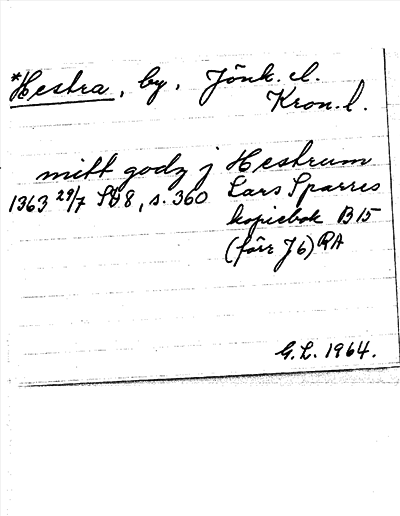 *Hestra, by, Jönk. l.
Kron. l.
mitt godz j Hestrum
1363 29/7 SD8, s. 360 Lars Sparres
kopiebok B15
(förr J6) RA
G.L. 1964.